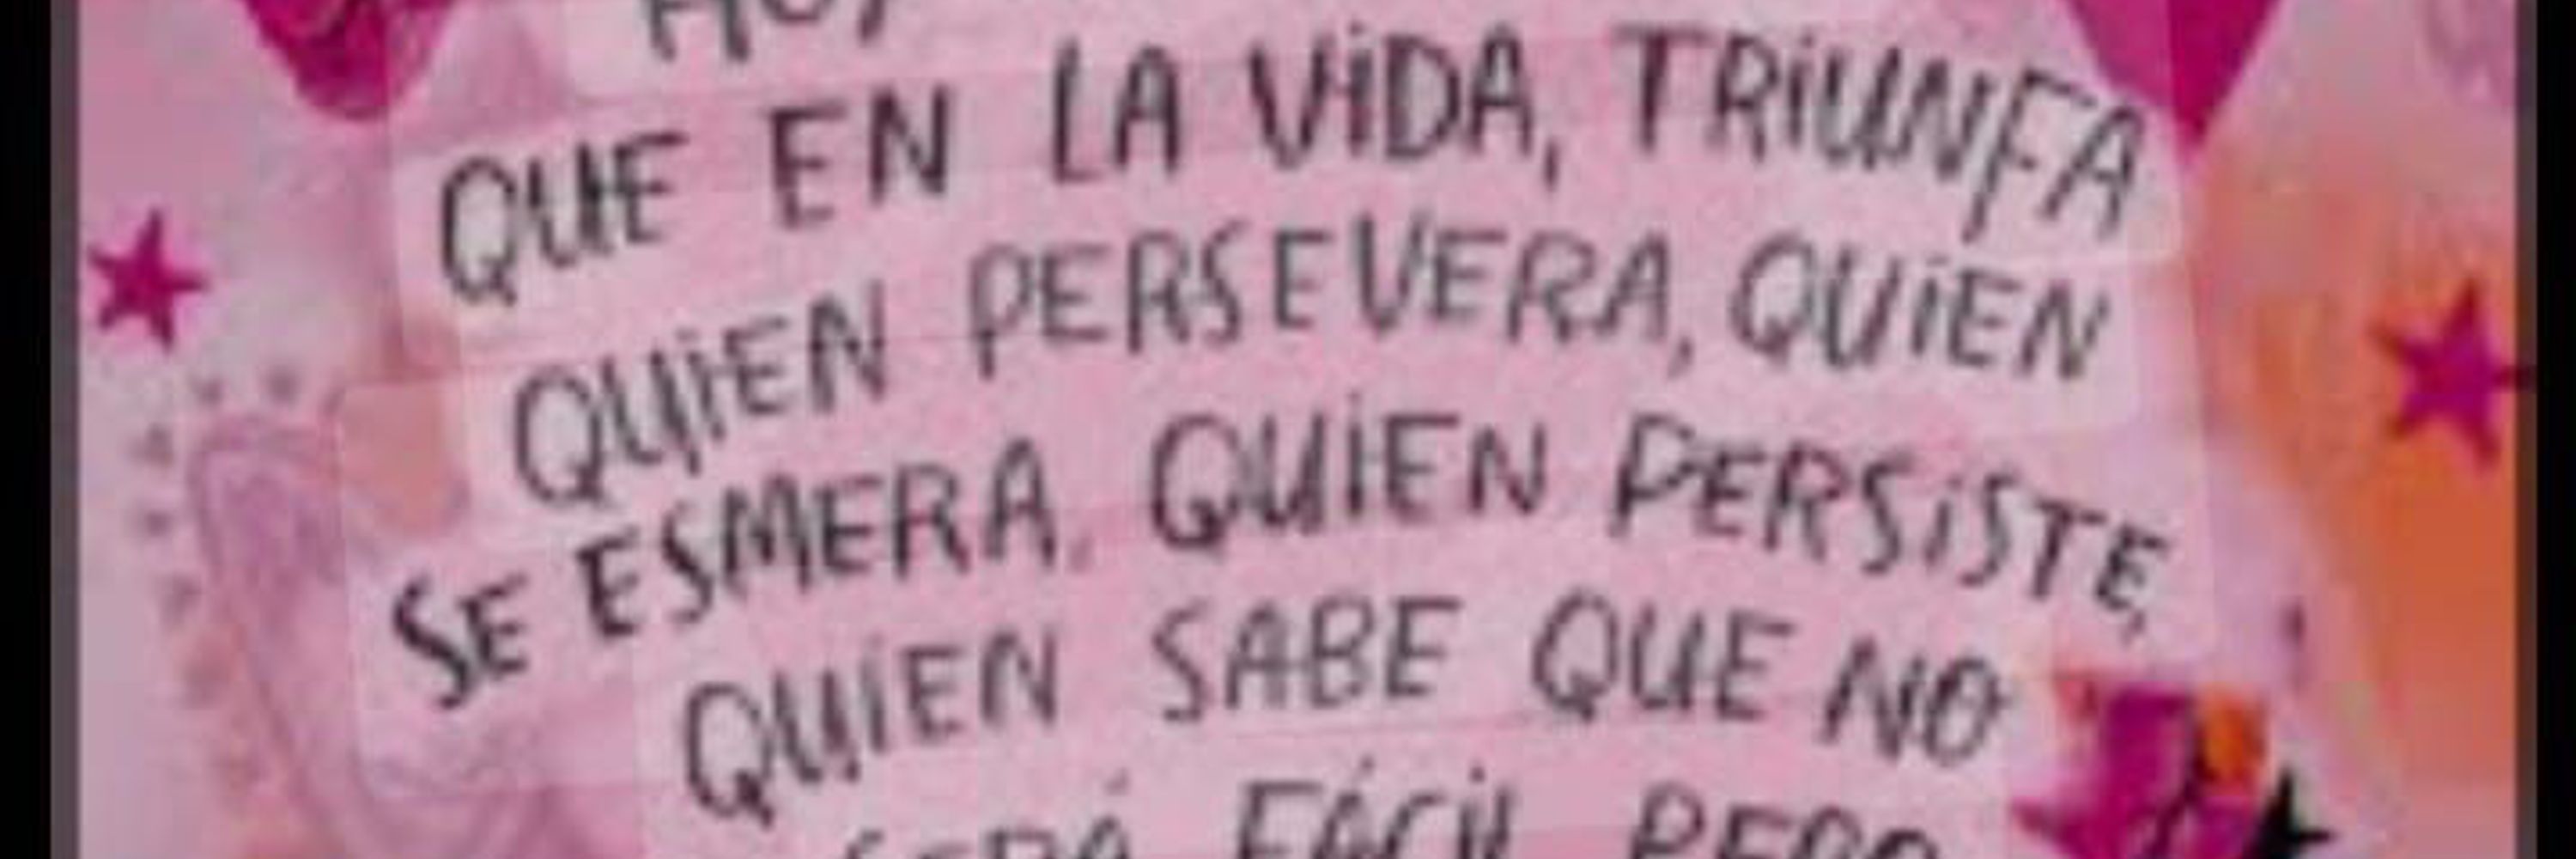 HOY
QUE EN LA ViDA, TRiUNFA
QUiEN PERSEVERA, QUiEN
SE ESMERA. QUiEN PERSiSTE,
QUiEN SABE QUE NO
SERÁ FÁCiL PERO